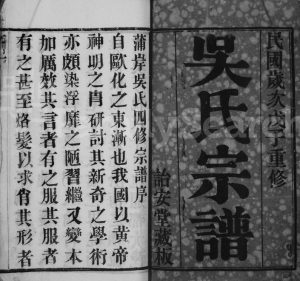 民國歲次戊子重修
吳氏宗譜
詒安堂藏板
蒲岸吳氏四修宗譜序
自歐化之東漸也我國以黃帝
神明之胄研討其新奇之學術
亦頗染浮靡之陋習繼又變本
加厲效其言者有之服其服者
有之甚至烙髮以求肖其形者